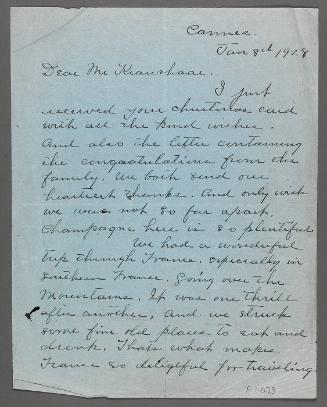 Cannes.
Jan 8th 1928
Dear Mr Kraushaar.
I just
received your christmas card
with all the kind wishes.
And also the letter containing
the congratulations from the
family. We both send our
heartiest thanks. And only wish
we was not so far apart.
Champagne here is so plentiful
We had a wonderful
trip through France. especially in
Southern France. Going over the
Mountains. It was one thrill
after another, And we struck
some fine old places to eat and
drink. Thats what makes
France so delightful for traveling